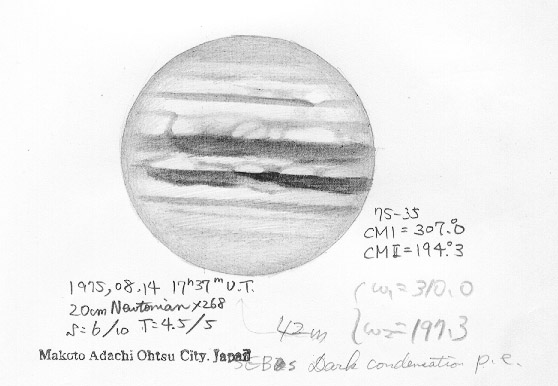 75-35
CMI = 307.°0
CMII = 194.°3
1975, 08.14 17ʰ37ᵐ U.T.
20cm Newtonian ×268
S=6/10 T=4.5/5
Makoto Adachi Ohtsu City. Japan
ω₁ = 310.0
42m ω₂ = 197.3
Dark condensation p.e.